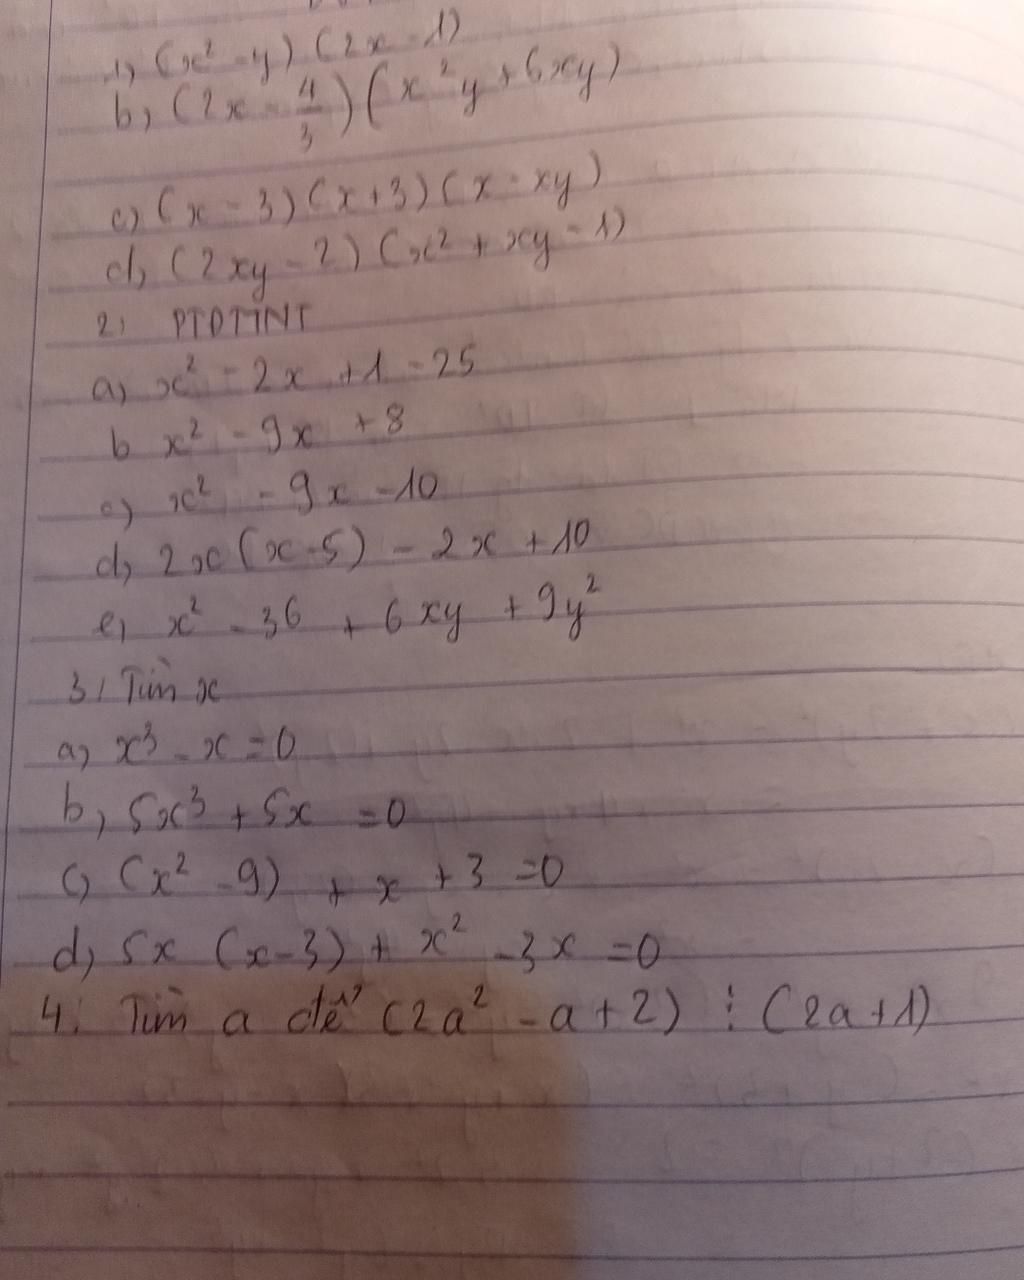 1) (x² - y) (2x - 1)
b) (2x - 4/3) (x²y + 6xy)
c) (x - 3) (x + 3) (x - xy)
d) (2xy - 2) (x² + xy - 1)
2) PTDTTNT
a) x² - 2x + 1 - 25
b x² - 9x + 8
c) x² - 9x - 10
d) 2x (x - 5) - 2x + 10
e) x² - 36 + 6xy + 9y²
3) Tìm x
a) x³ - x = 0
b) 5x³ + 5x = 0
c) (x² - 9) + x + 3 = 0
d) 5x (x - 3) + x² - 3x = 0
4. Tìm a để (2a² - a + 2) ⋮ (2a + 1)